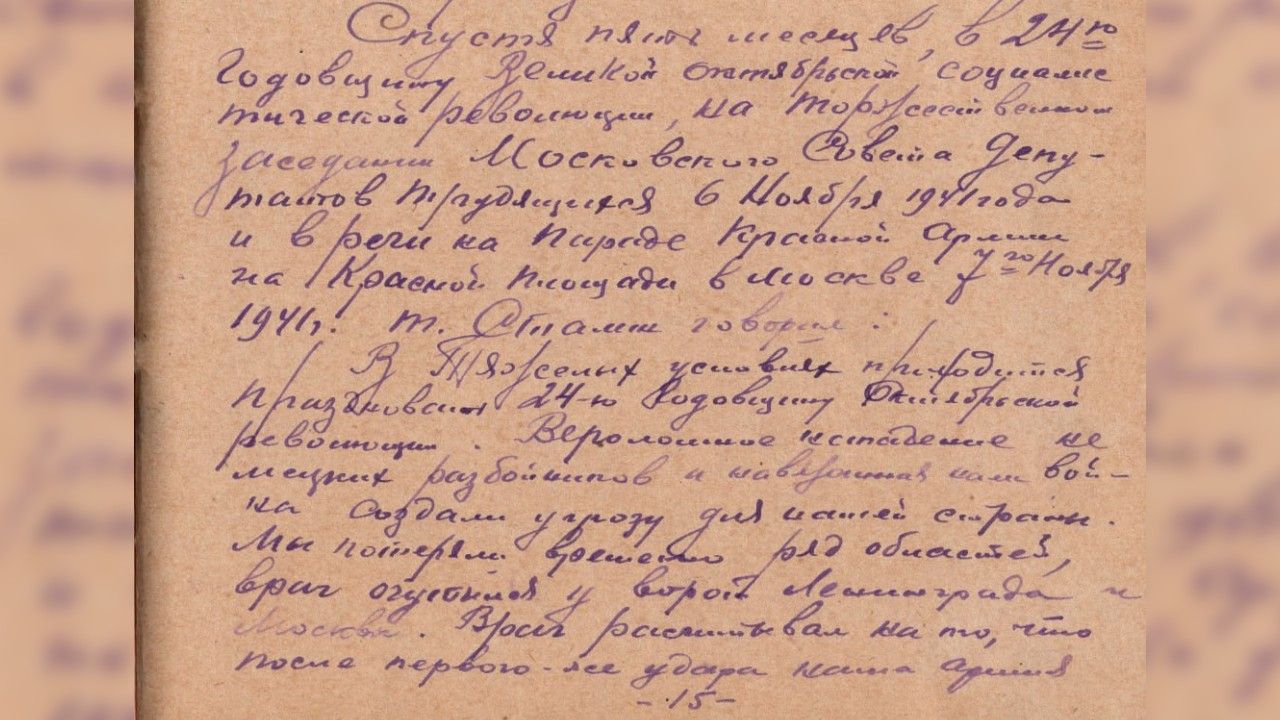 Спустя пять месяцев, в 24ю
Годовщину Великой октябрьской социалис
тической революции, на торжественном
заседании Московского Совета Депу-
татов трудящихся 6 Ноября 1941 года
и в речи на параде Красной Армии
на Красной площади в Москве 7го Ноября
1941г. т. Сталин говорил:
В тяжелых условиях приходится
праздновать 24-ю Годовщину Октябрьской
революции. Вероломное нападение не
мецких разбойников и навязанная нам вой-
на создали угрозу для нашей страны.
Мы потеряли временно ряд областей,
враг очутился у ворот Ленинграда и
Москвы. Враг расчитывал на то, что
после первого-же удара наша армия
-15-